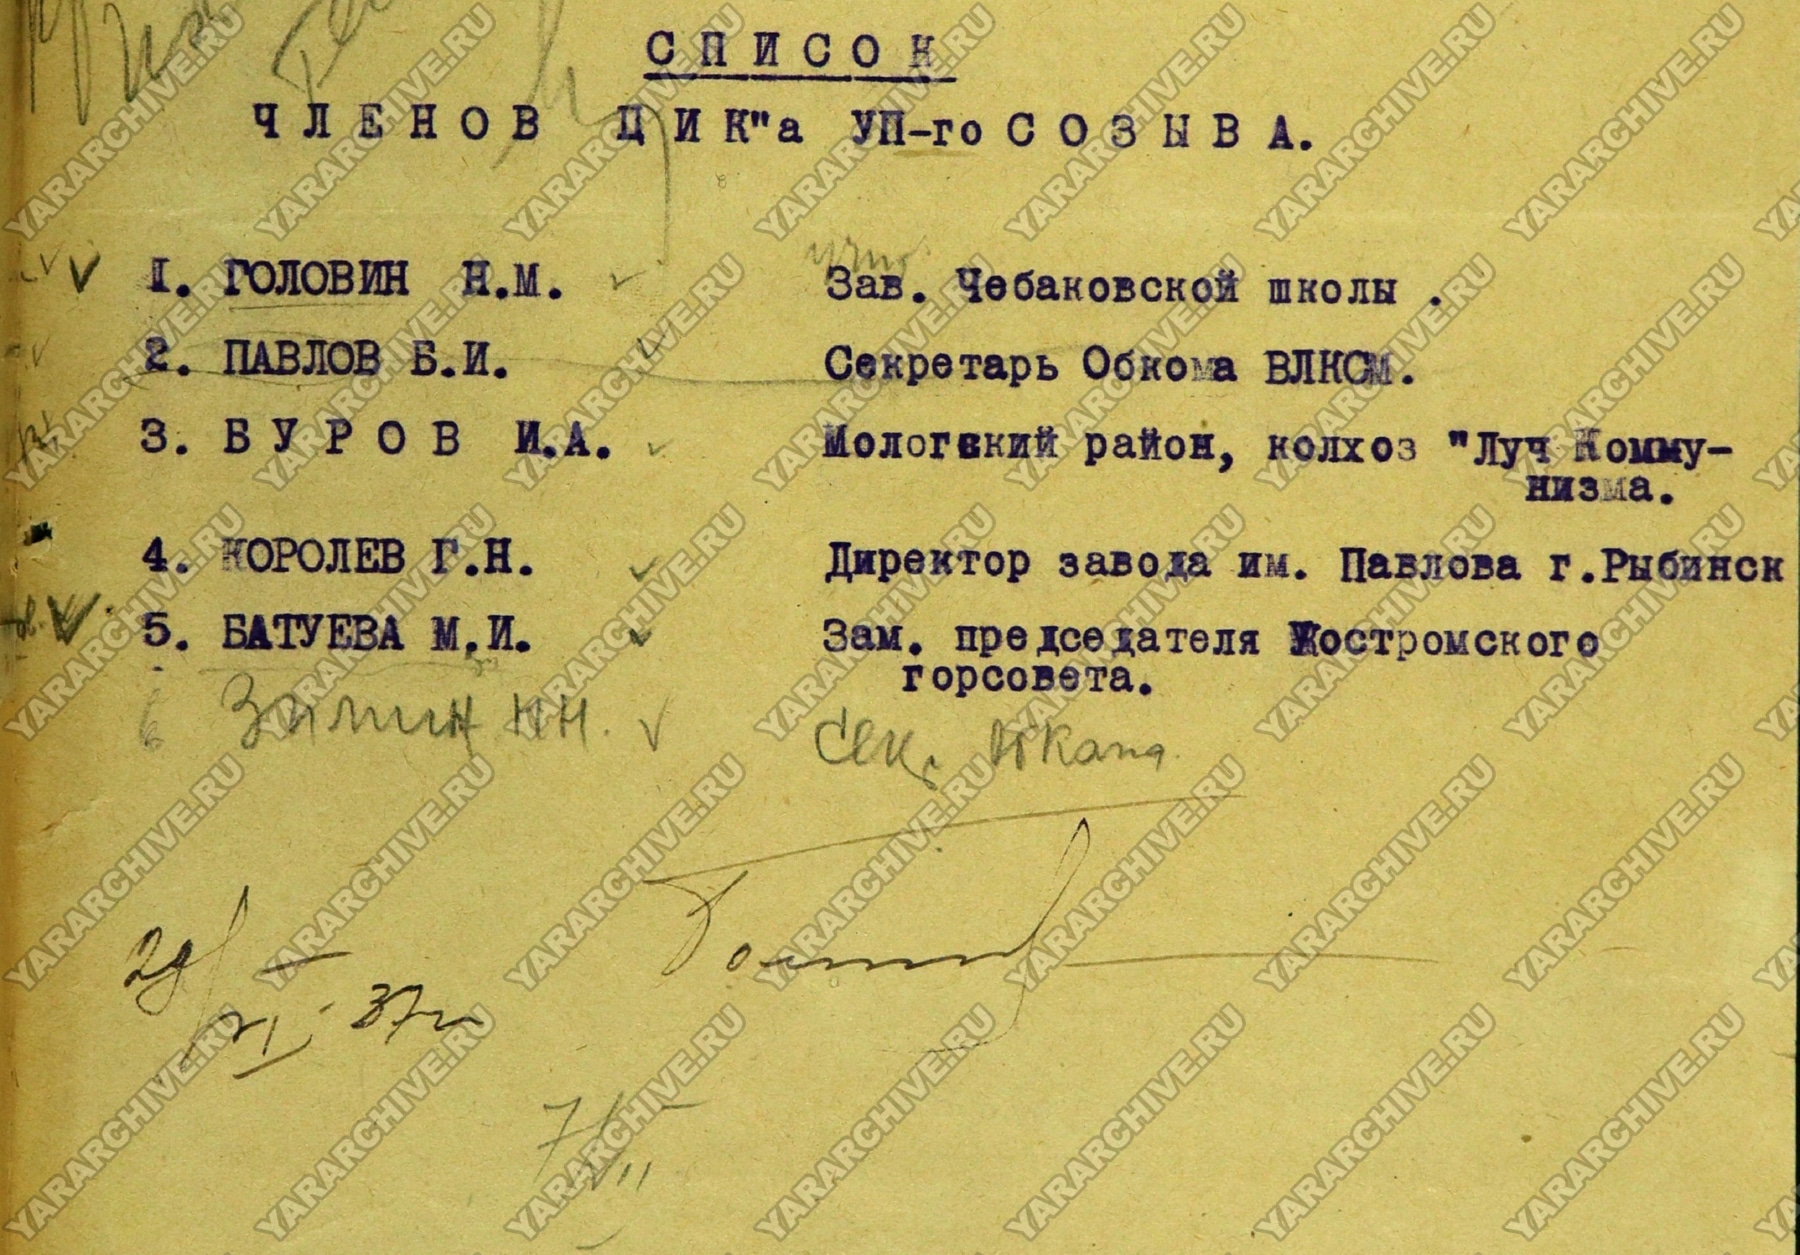 СПИСОК
ЧЛЕНОВ ЦИК"а УП-го СОЗЫВА.
1. ГОЛОВИН Н.М. Зав. Чебаковской школы .
2. ПАВЛОВ Б.И. Секретарь Обкома ВЛКСМ.
3. БУРОВ И.А. Мологский район, колхоз "Луч Комму-
низма.
4. КОРОЛЕВ Г.Н. Директор завода им. Павлова г.Рыбинск
5. БАТУЕВА М.И. Зам. председателя Костромского
горсовета.
6 Зимин Н.Н. Секр
37г
YARARCHIVE.RU